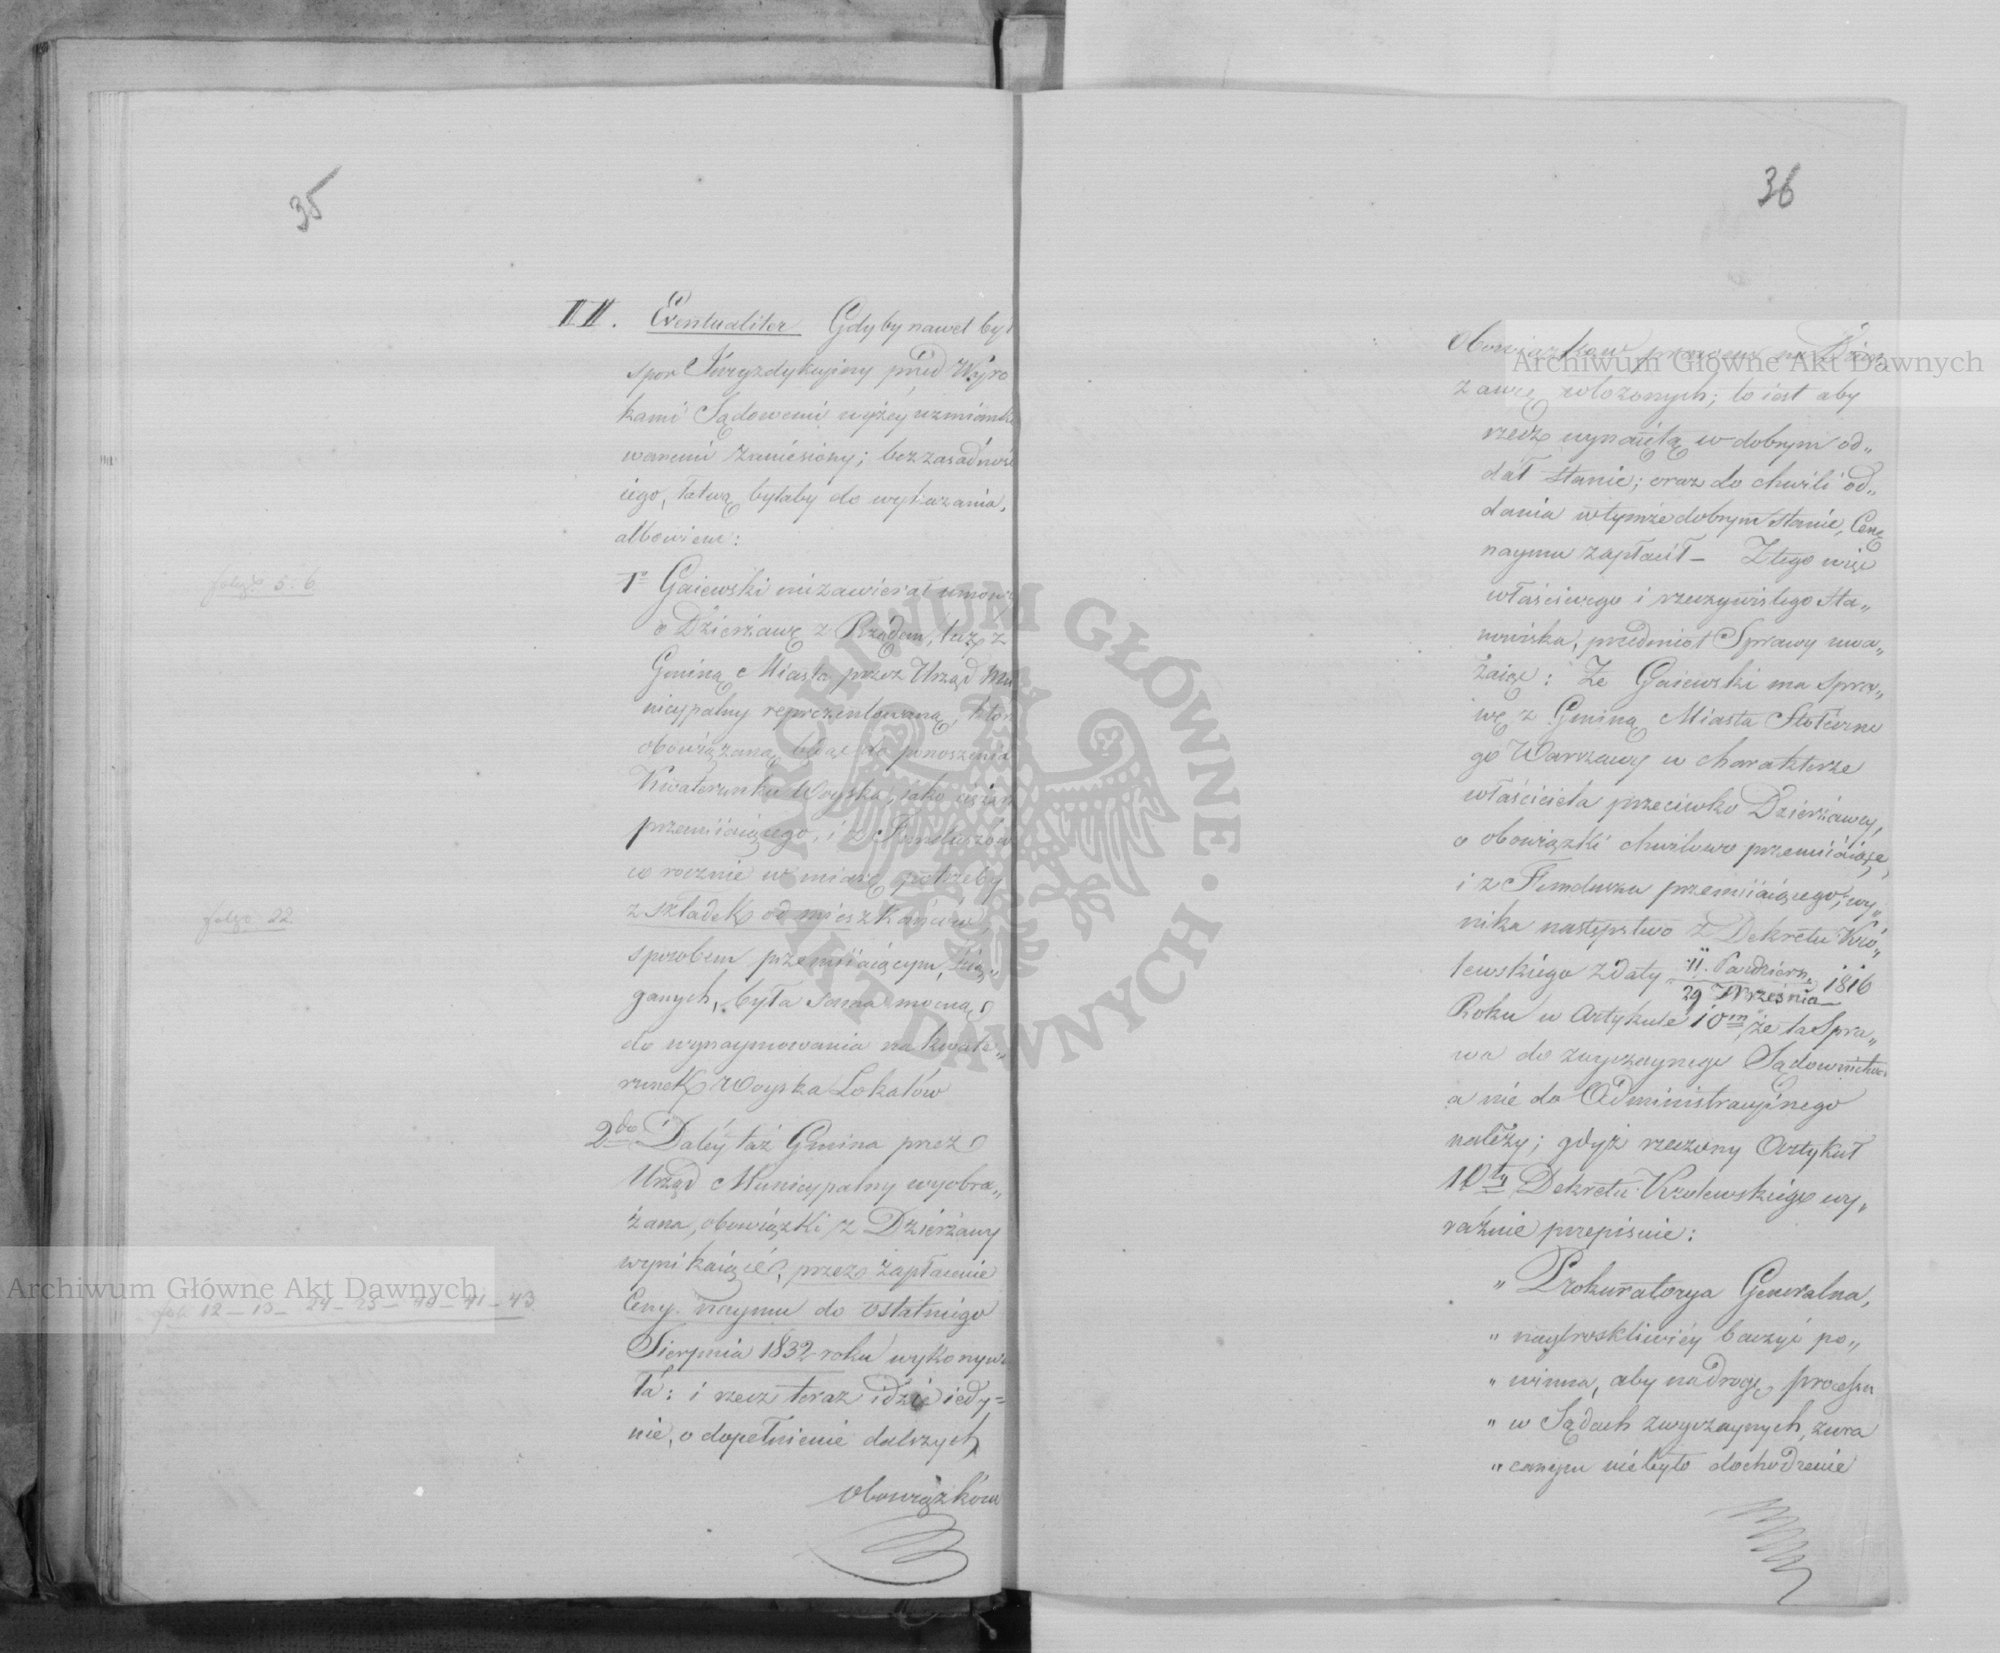 35
II. Eventualiter Gdyby nawet był
spor Juryzdykcyiny przed Wyro
kami Sądowemi wyżey wzmianko
wanemi zaniesiony; bezzasadność
iego, łatwą byłaby do wykazania,
albowiem:
folio 5. 6
1º Gaiewski niezawierał umowy
o Dzierżawę z Rządem, lecz z
Gminą Miasta przez Urząd Mu
nicypalny reprezentowaną, która
obowiązaną będąc do ponoszenia
Kwaterunku Woyska, iako ciężaru
przemiiaiącego, i z Funduszów
corocznie w miarę potrzeby
folio 22
z składek od mieszkańców,
sposobem przemiiaiącym, ścią„
ganych, była sama mocną
do wynaymowania na kwate„
runek Woyska Lokalów
2do Daléy taż Gmina przez
Urząd Municypalny wyobra„
żana, obowiązki z Dzierżawy
wynikaiące, przez zapłacenie
fol. 12 – 13 – 24 – 25 – 40 – 41 – 43
Ceny naymu do ostatniego
Sierpnia 1832 roku wykonywa
ła: i rzecz teraz idzie iedy=
nie, o dopełnienie dalszych
obowiązków
36
Obowiązków prawem na Dzier
żawcę włożonych; to iest aby
rzecz wynaiętą w dobrym od„
dał stanie; oraz do chwili od„
dania w tymże dobrym stanie, Cenę
naymu zapłacił – Z tego więc
właściwego i rzeczywistego sta„
nowiska, przedmiot Sprawy uwa„
żaiąc: Że Gaiewski ma spra„
wę z Gminą Miasta Stołeczne
go Warszawy w charakterze
właściciela przeciwko Dzierżawcy,
o obowiązki chwilowo przemiiaiące,
i z Funduszu przemiiaiącego; wy„
nika następstwo z Dekretu Kró„
lewskiego z daty 11. Paździer. / 29 Września 1816
Roku w Artykule 10m, że ta Spra„
wa do zwyczaynego Sądownictwa
a nie do Administracyinego
należy; gdyż rzeczony Artykuł
10ty Dekretu Krolewskiego wy„
raźnie przepisuie:
„ Prokuratorya Generalna,
„ naytroskliwiéy baczyć po„
„ winna, aby na drogę processu
„ w Sądach zwyczaynych, zwra
„ canem niebyło dochodzenie
Archiwum Główne Akt Dawnych
Archiwum Główne Akt Dawnych
Archiwum Główne Akt Dawnych
· ARCHIWUM GŁÓWNE · AKT DAWNYCH